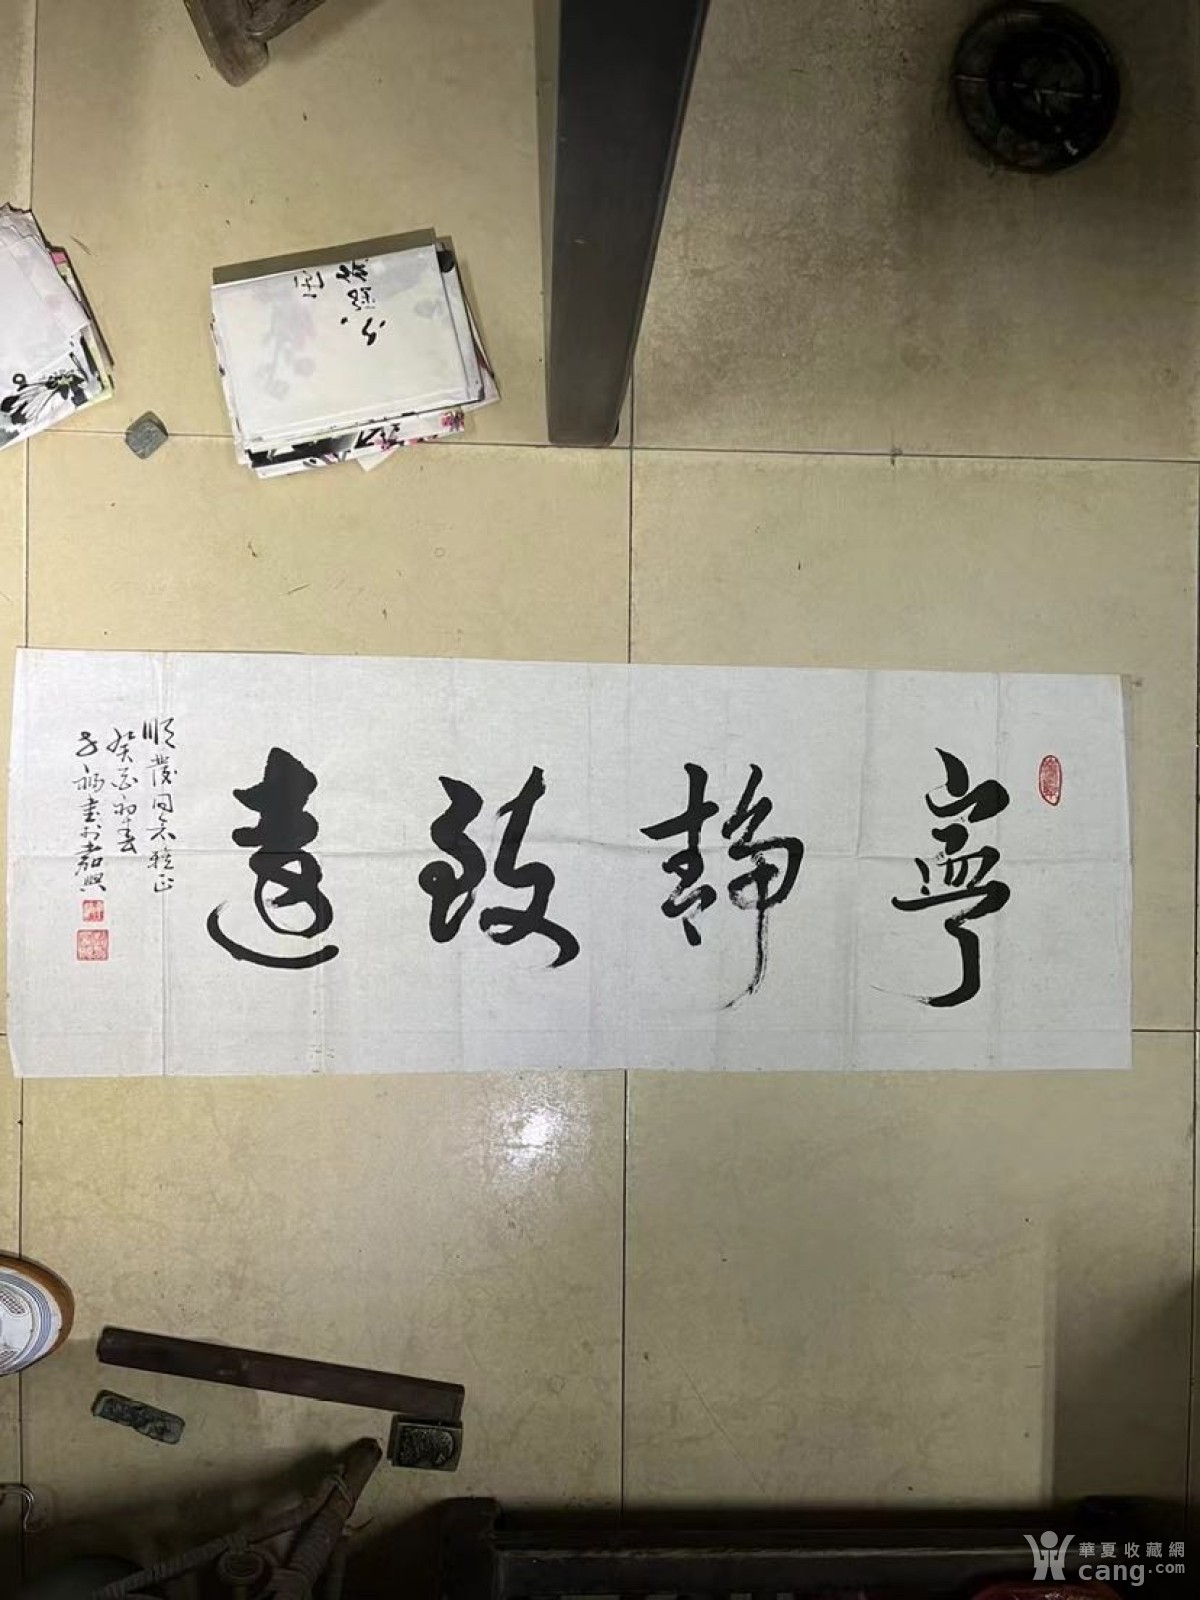 寧靜致遠
順發同志雅正
癸酉初春
書於嘉興
華夏收藏網
cang.com